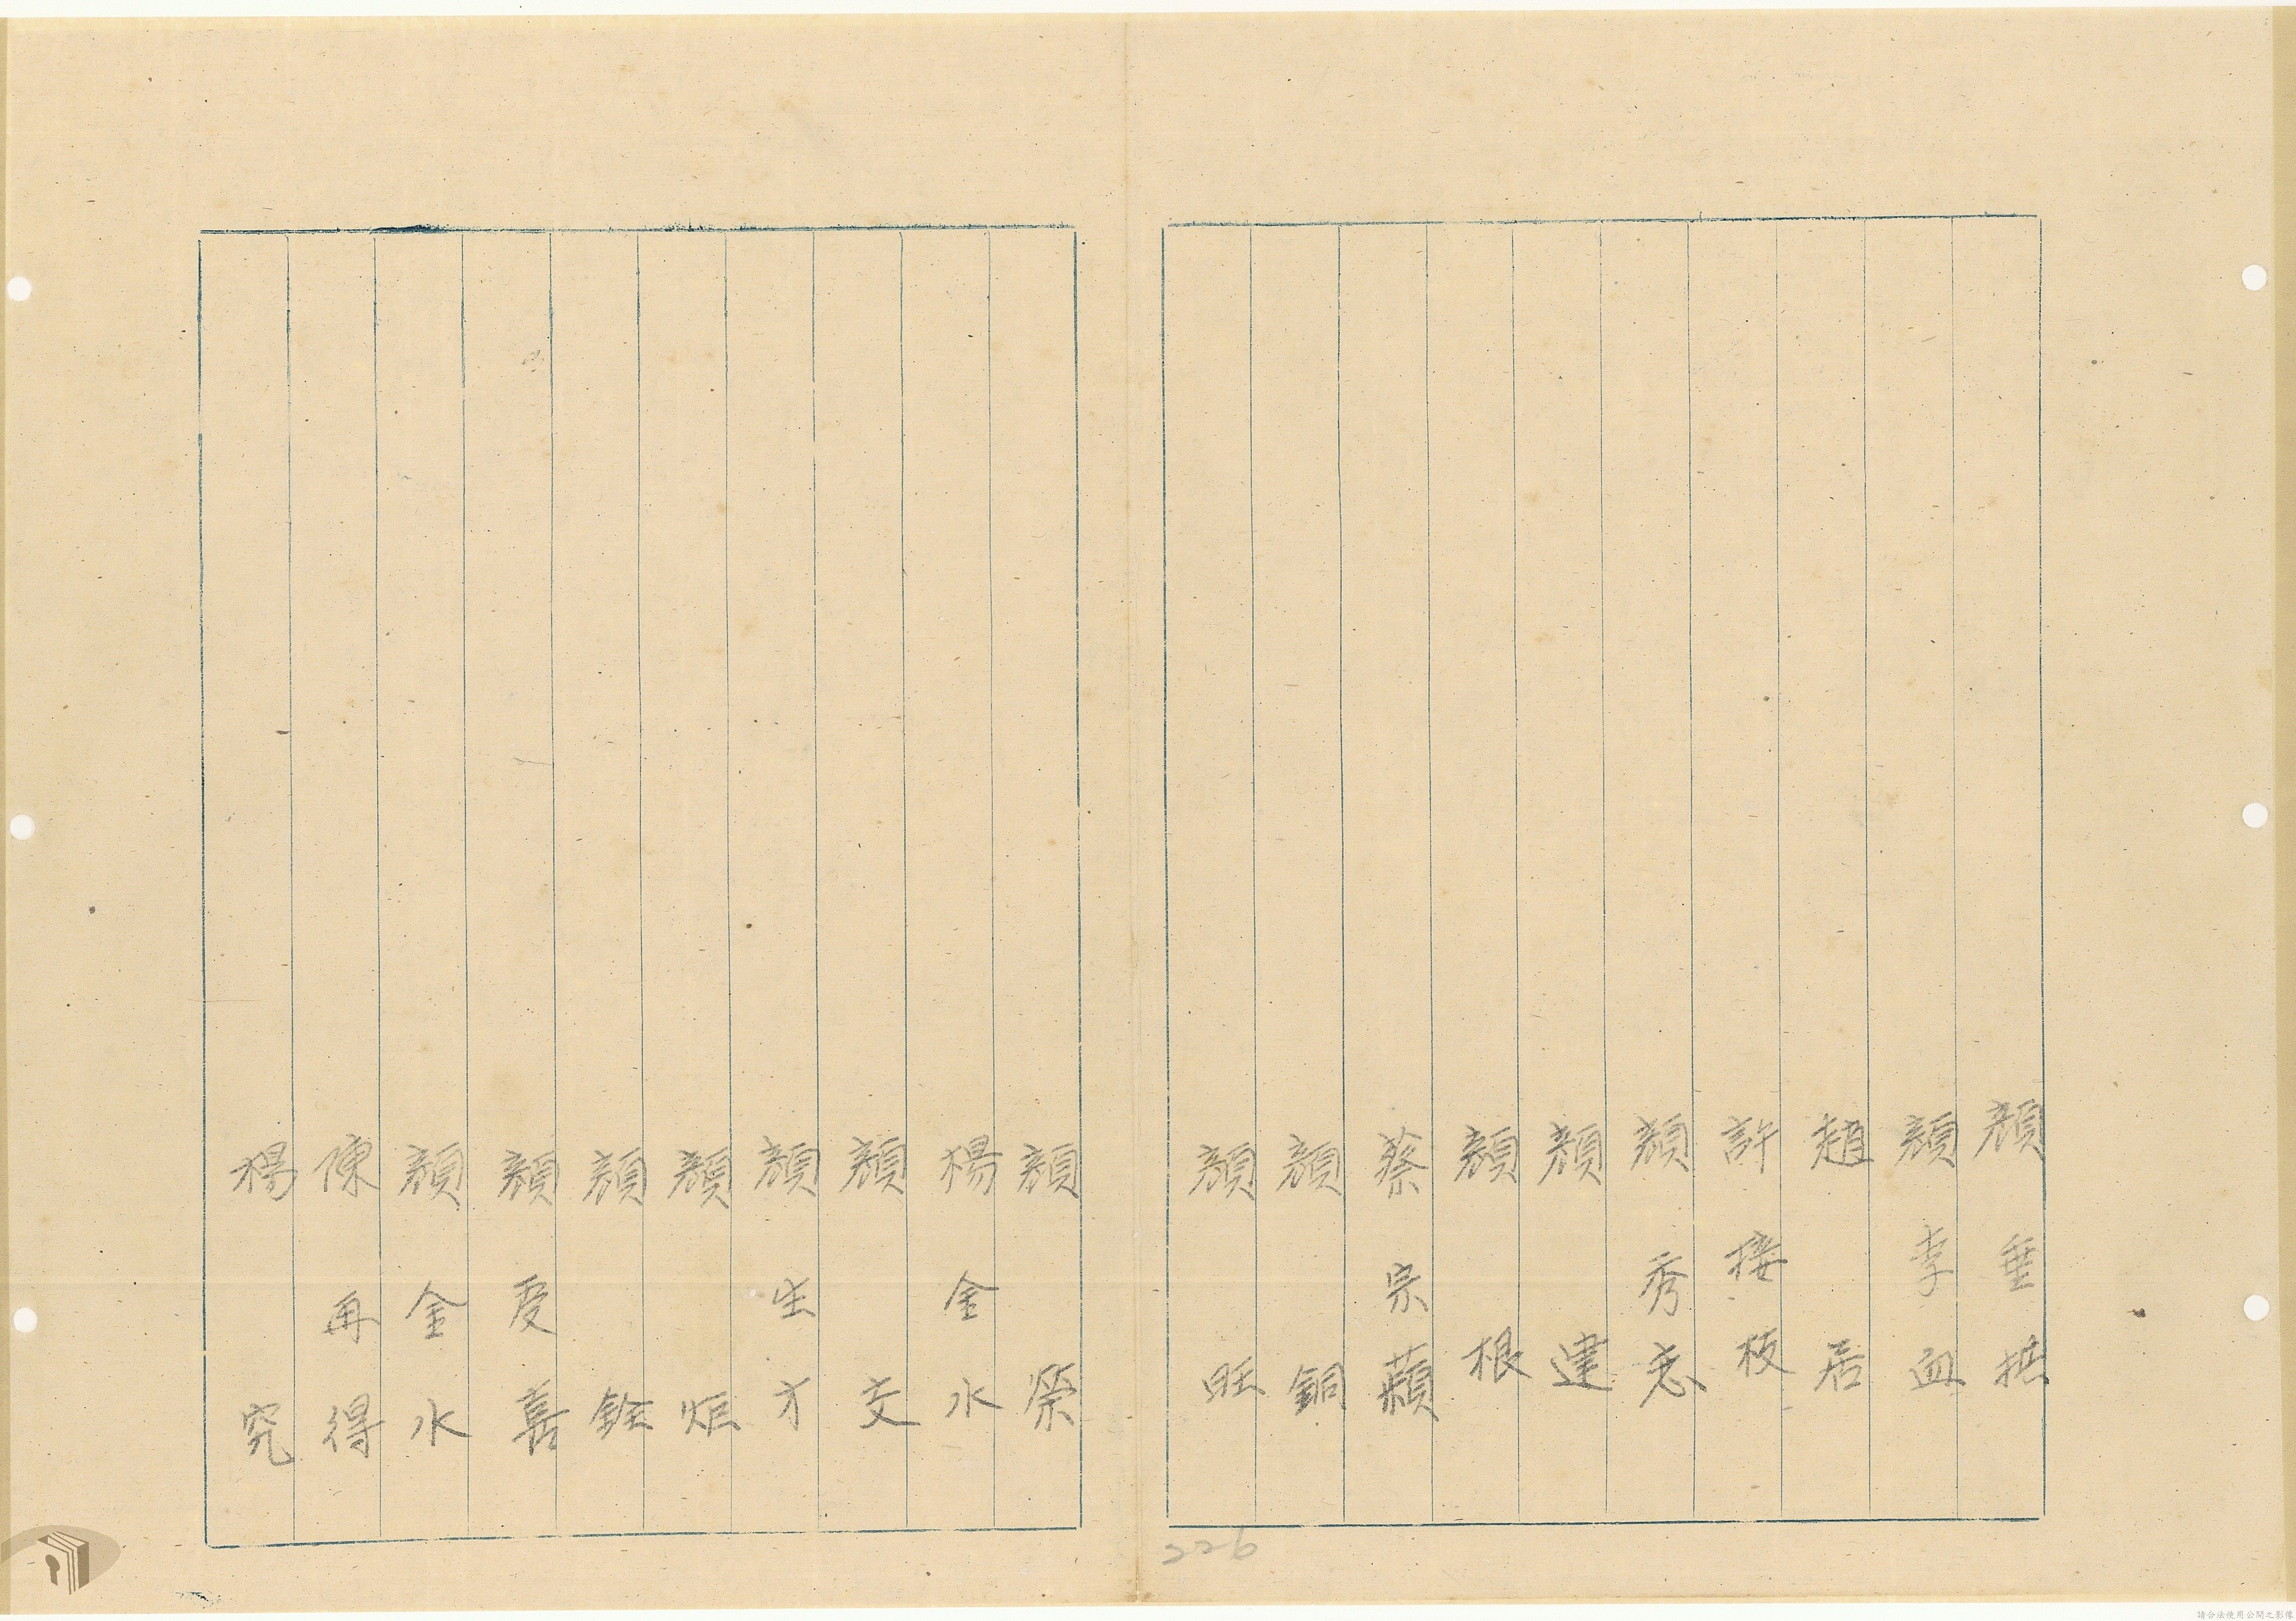 顏垂拱
顏李血
趙居
許接枝
顏秀忠
顏建
顏根
蔡宗蘋
顏銅
顏旺
顏榮
楊金水
顏文
顏生才
顏炬
顏銓
顏受善
顏金水
陳再得
楊究
226
請合法使用公開之影像